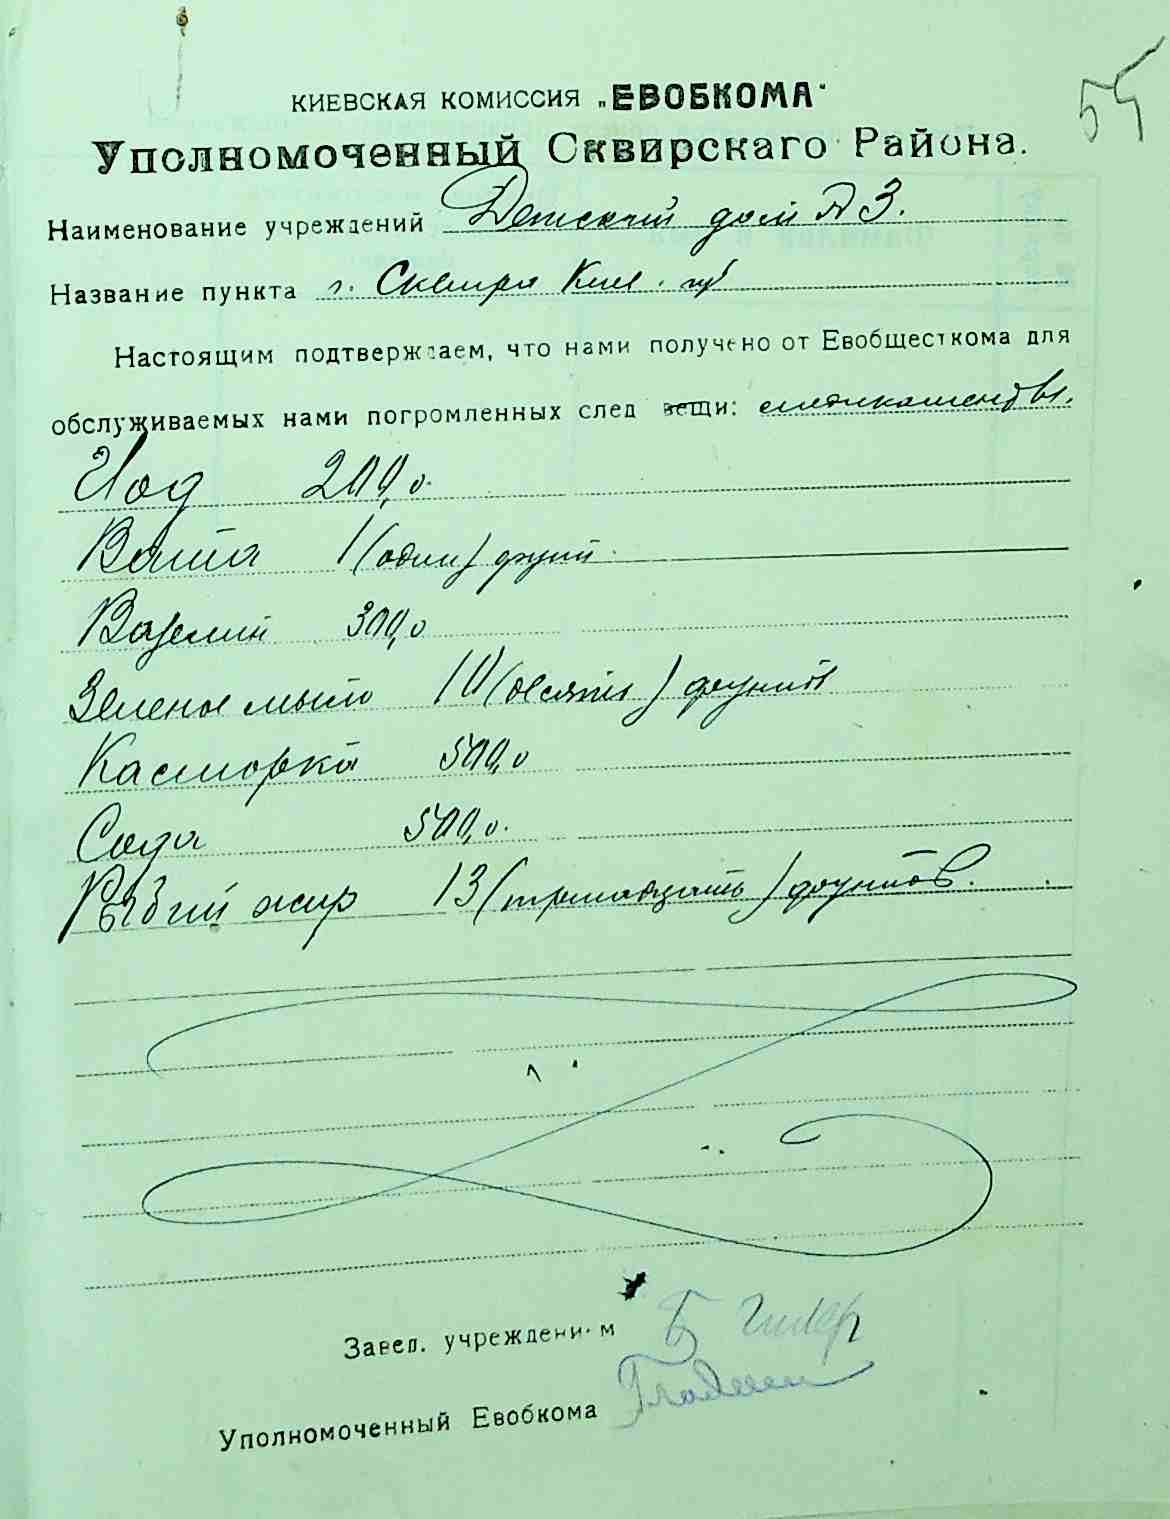 54
КИЕВСКАЯ КОМИССИЯ „ЕВОБКОМА"
Уполномоченный Сквирскаго Района.
Наименование учреждений Детский дом № 3.
Название пункта г. Сквира Киев. губ
Настоящим подтверждаем, что нами получено от Евобщесткома для
обслуживаемых нами погромленных след вещи: медикаменты.
Иод 200,0.
Вата 1 (один) фунт.
Вазелин 300,0
Зеленое мыло 10 (десять) фунтов
Касторка 500,0
Сода 500,0.
Рыбий жир 13 (тринадцать) фунтов.
Завед. учреждением Б
Уполномоченный Евобкома